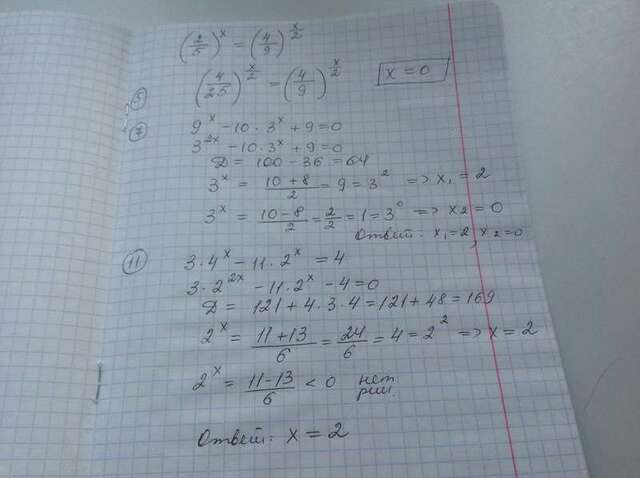 (2/5)^x = (4/9)^(x/2)
⑤ (4/25)^(x/2) = (4/9)^(x/2) x = 0
⑦ 9^x - 10 · 3^x + 9 = 0
3^(2x) - 10 · 3^x + 9 = 0
D = 100 - 36 = 64
3^x = (10 + 8)/2 = 9 = 3^2 => x₁ = 2
3^x = (10 - 8)/2 = 2/2 = 1 = 3^0 => x₂ = 0
Ответ: x₁ = 2, x₂ = 0
⑪ 3 · 4^x - 11 · 2^x = 4
3 · 2^(2x) - 11 · 2^x - 4 = 0
D = 121 + 4 · 3 · 4 = 121 + 48 = 169
2^x = (11 + 13)/6 = 24/6 = 4 = 2^2 => x = 2
2^x = (11 - 13)/6 < 0 нет
реш.
Ответ: x = 2